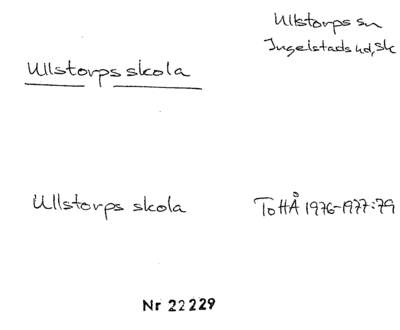 Ullstorps sn
Ingelstads hd, Sk
Ullstorps skola
Ullstorps skola
ToHÅ 1976-1977:79
Nr 22229